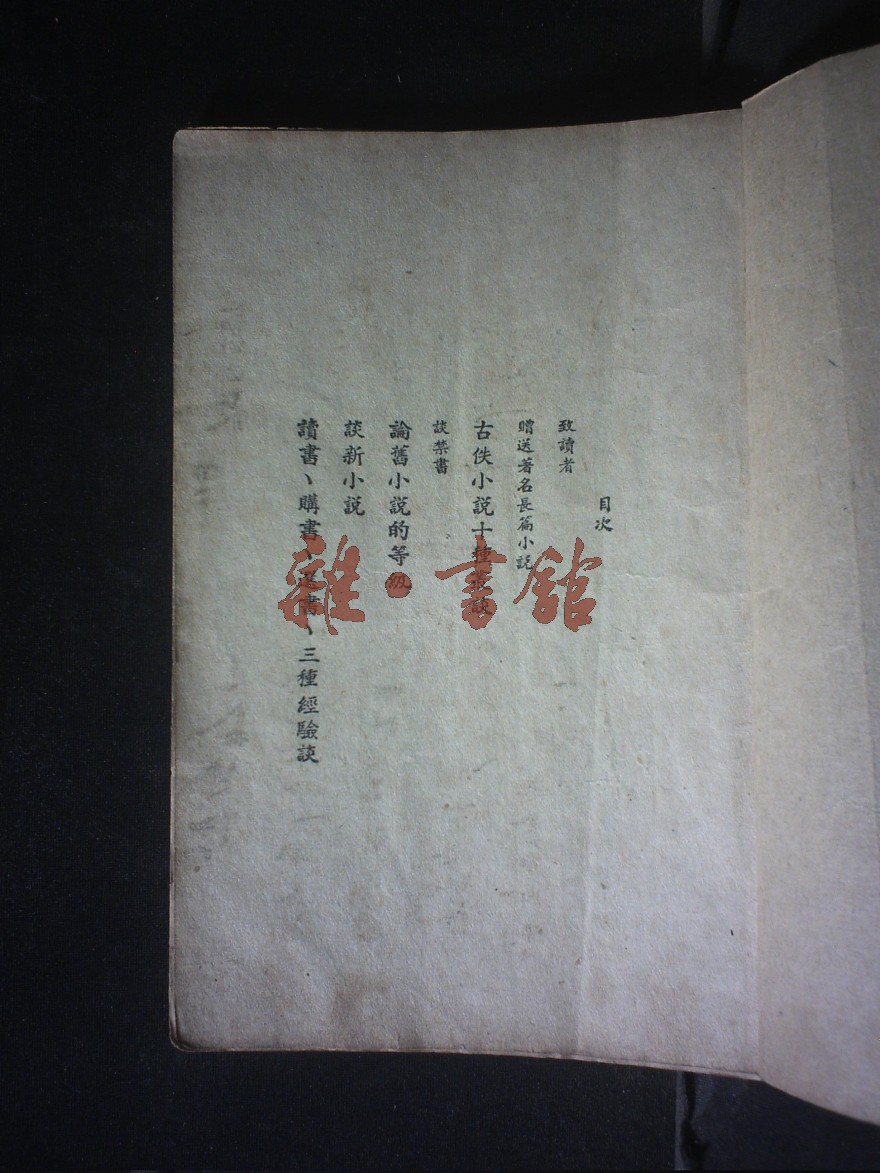 目次
致讀者
贈送著名長篇小説
古佚小説十種叢談
談禁書
論舊小説的等級
談新小説
讀書、購書、選書、三種經驗談
雜·書館